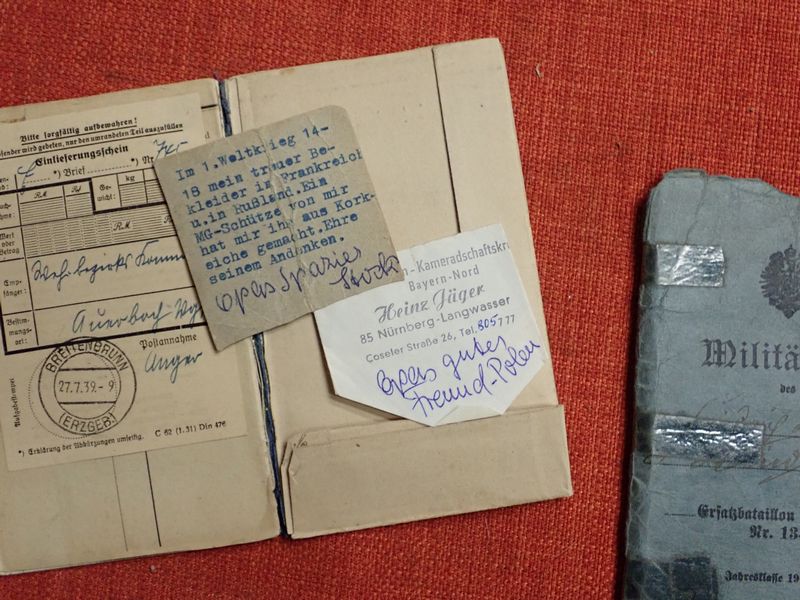 Bitte sorgfältig aufbewahren!
sender wird gebeten, nur den umrandeten Teil auszufüllen
Einlieferungsschein
*) Brief Nr. 765
RM Rpf Ge- kg g
wicht:
Wert
oder
Betrag
RM
Emp-
fänger:
Wehrbezirks Komm
Bestim-
mungs-
ort:
Auerbach Vgtl
Postannahme
Anger
Aufgabestempel
BREITENBRUNN
27.7.39.-9
(ERZGEB)
*) Erklärung der Abkürzungen umseitig. C 62 (1.31) Din 476
Im 1.Weltkrieg 14-
18 mein treuer Be-
kleider in Frankreich
u.in Rußland.Ein
MG-Schütze von mir
hat mir ihn aus Kork-
eiche gemacht.Ehre
seinem Andenken.
Opas Spazier
Stock
n-Kameradschaftskr
Bayern-Nord
Heinz Jäger
85 Nürnberg-Langwasser
Coseler Straße 26, Tel. 805777
Opas guter
Freund-Polen
Militä
des
Ersatzbataillon
Nr. 13
Jahresklasse 19